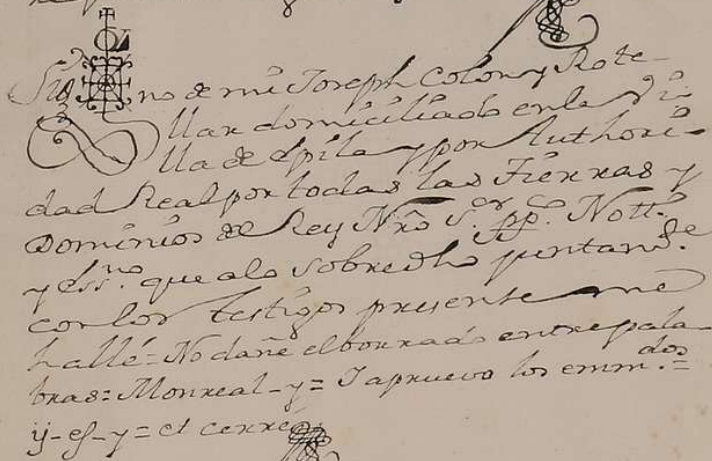 Sig no de mi Joseph Colon y Rote-
llar domiciliado en la Vi-
lla de Epila y por Authori-
dad Real por todas las Tierras y
Dominios del Rey Nrõ S.or pp.co Nott.
y Ess.no que alo sobredho juntam.te
con los testigos presente me
hallé = No dañe el borrado entre pala-
bras = Monreal - y = I apruevo los emm.dos =
ij - es - y = et cerré